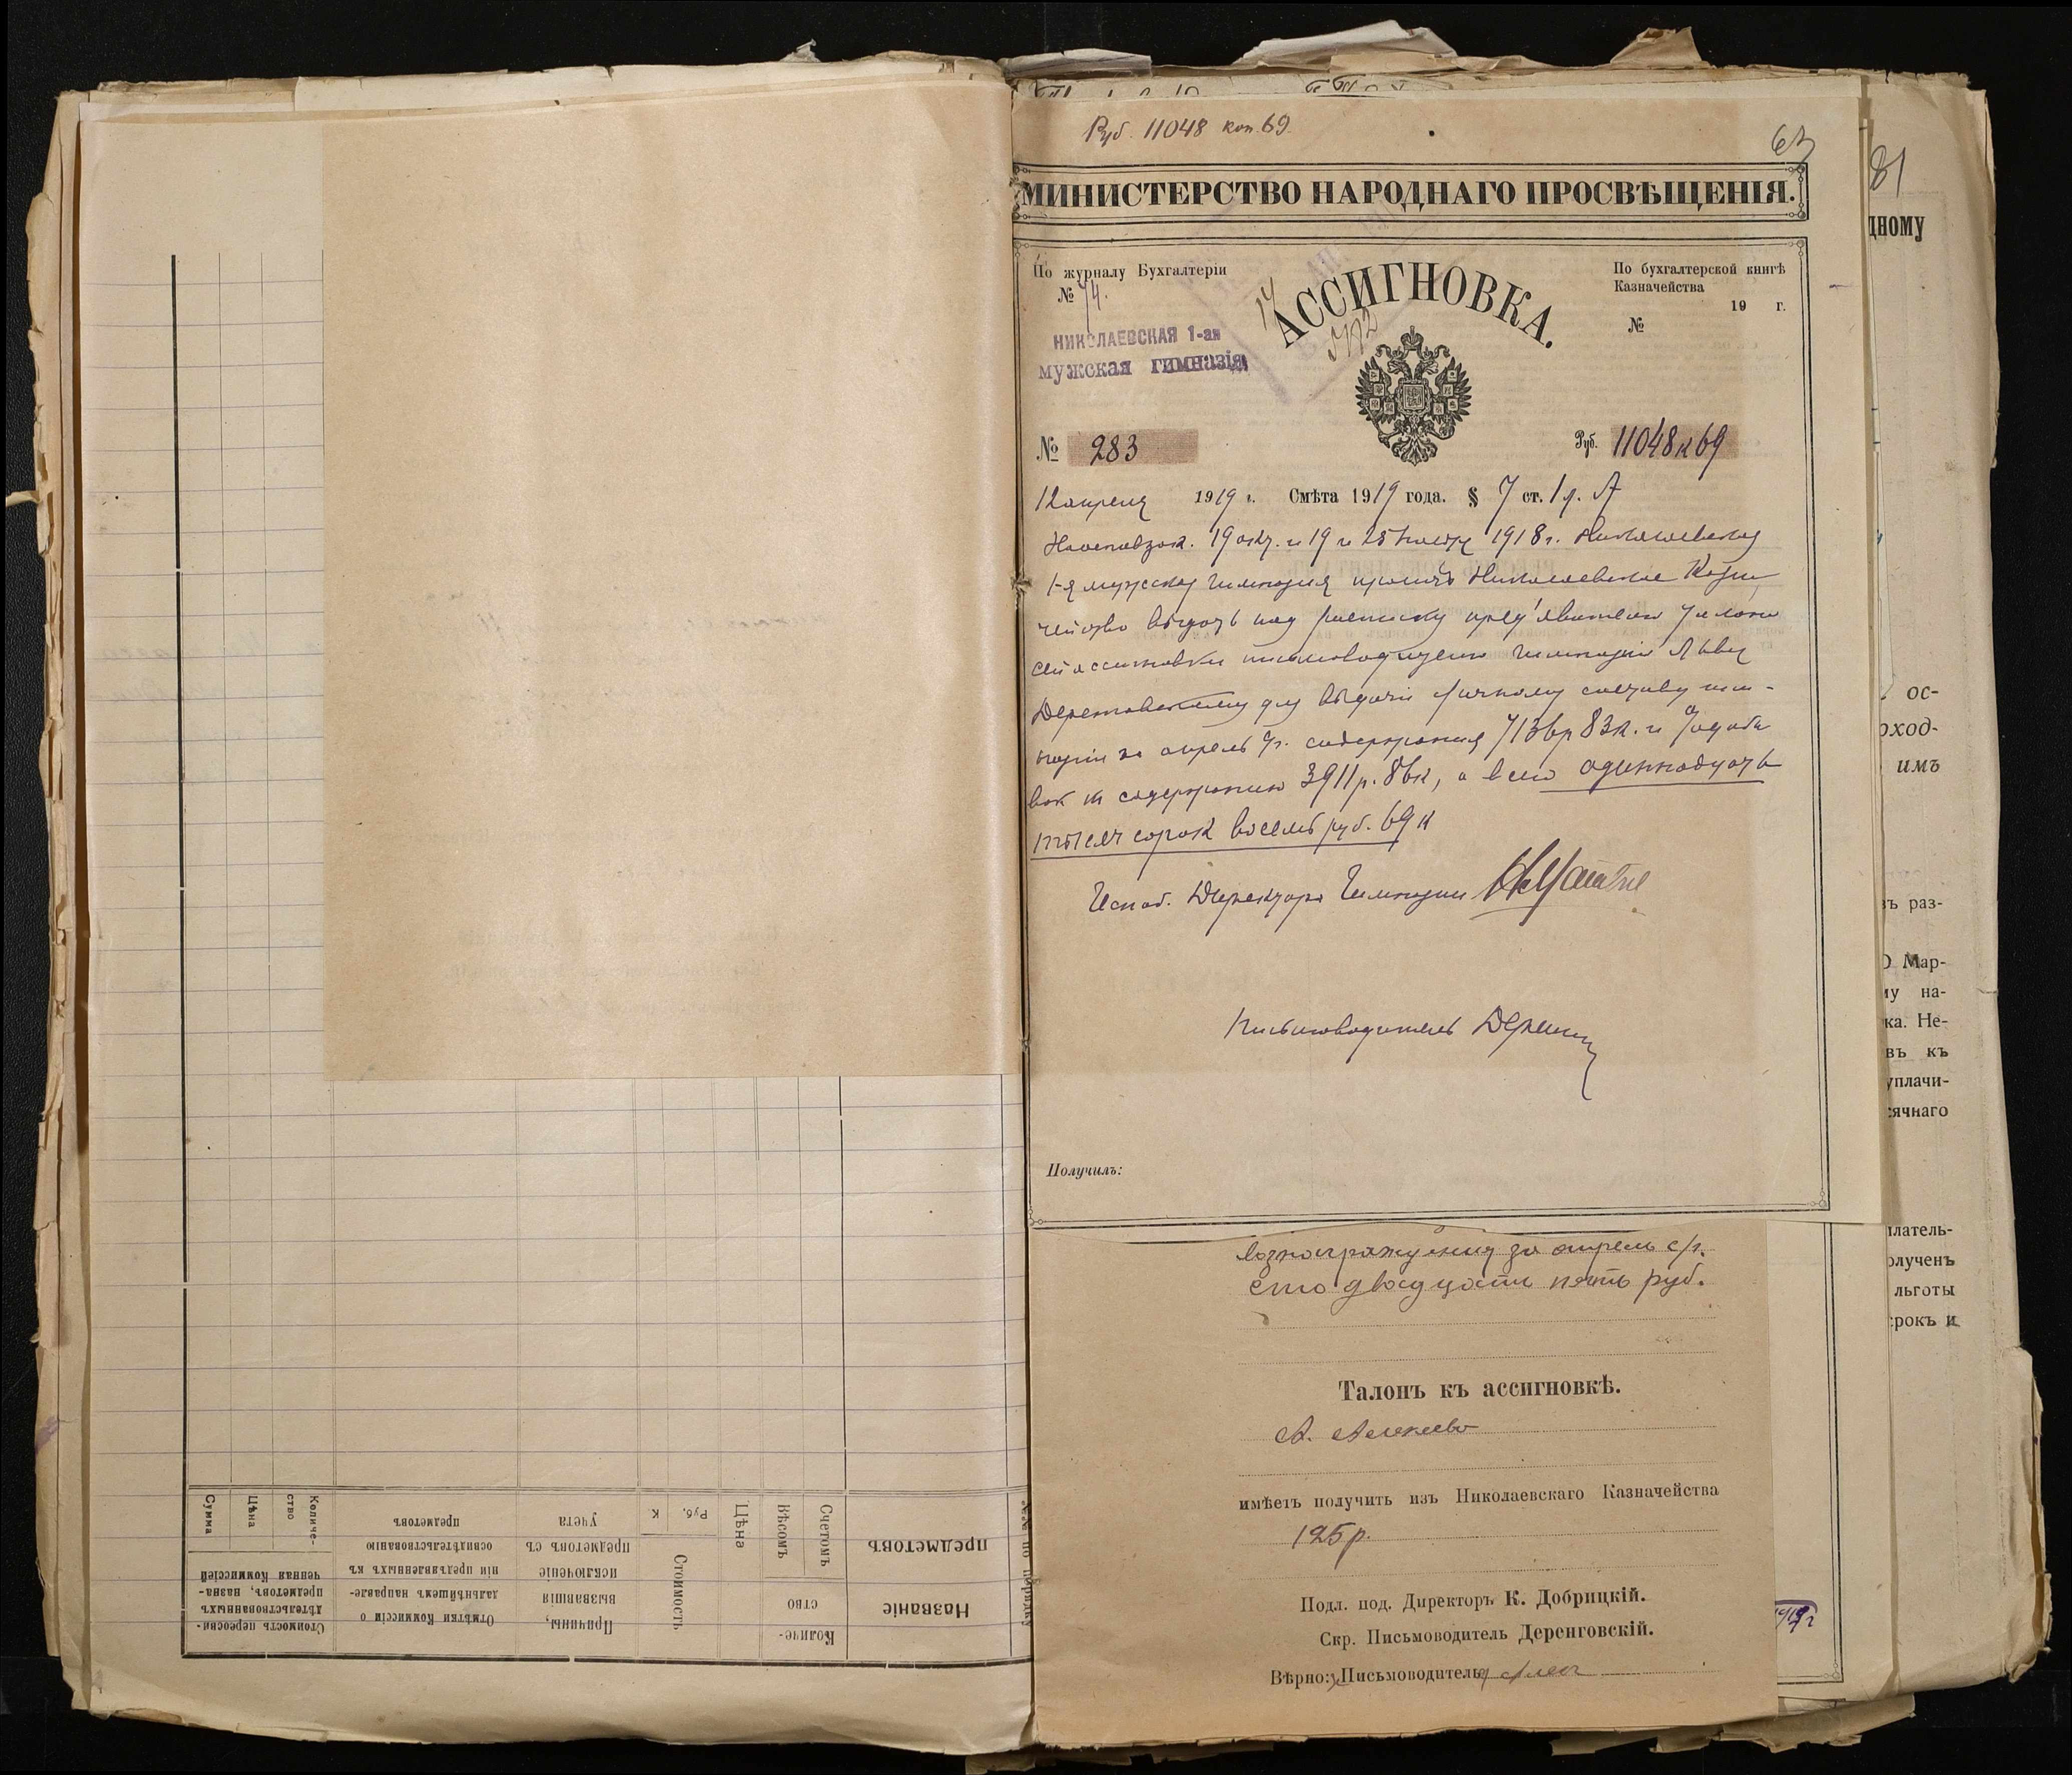 Руб. 11048 коп. 69.
63
МИНИСТЕРСТВО НАРОДНАГО ПРОСВѢЩЕНІЯ.
По журналу Бухгалтеріи
№ 74.
НИКОЛАЕВСКАЯ 1-ая
мужская гимназія
АССИГНОВКА.
По бухгалтерской книгѣ
Казначейства
19 г.
№
№ 283
Руб. 11048 к 69
12 апреля 1919 г. Смѣта 1919 года. § 7 ст. 1 л. А
19 окт. и 19 и 25 1918 г. Николаевская
1-я мужская гимназия просит Николаевское Казна
чейство выдать под расписку пред'явителю талона
сей ассигновки письмоводителю гимназии Льву
Деренговскому для выдачи личному составу гим-
назии за апрель с/г. содержания 7136р 83к. и
вок к содержанию 3911р. 86к, а всего одиннадцать
тысяч сорок восемь руб. 69 к
Исп об. Директора Гимназии
Письмоводитель
Получилъ:
вознаграждения за апрель с/г.
сто двадцать пять руб.
Талонъ къ ассигновкѣ.
А.
имѣетъ получить изъ Николаевскаго Казначейства
125 р.
Подл. под. Директоръ К. Добрицкій.
Скр. Письмоводитель Деренговскій.
Вѣрно: Письмоводитель
81
дному
ос-
оход-
имъ
раз-
Мар-
на-
ка. Не-
въ къ
уплачи-
сячнаго
платель-
олученъ
льготы
срокъ и
№№ по порядку
Названіе
предметовъ
Количе-
ство
Счетомъ
Вѣсомъ
Цѣна
Стоимость
Руб. К
Причины,
вызвавшія
исключеніе
предметовъ съ
учета
Отмѣтки Комиссіи о
дальнѣйшемъ направле-
ніи предъявленныхъ къ
освидѣтельствованію
предметовъ
Стоимость пересви-
дѣтельствованныхъ
предметовъ, назна-
ченная Комиссіей
Количе-
ство
Цѣна
Сумма